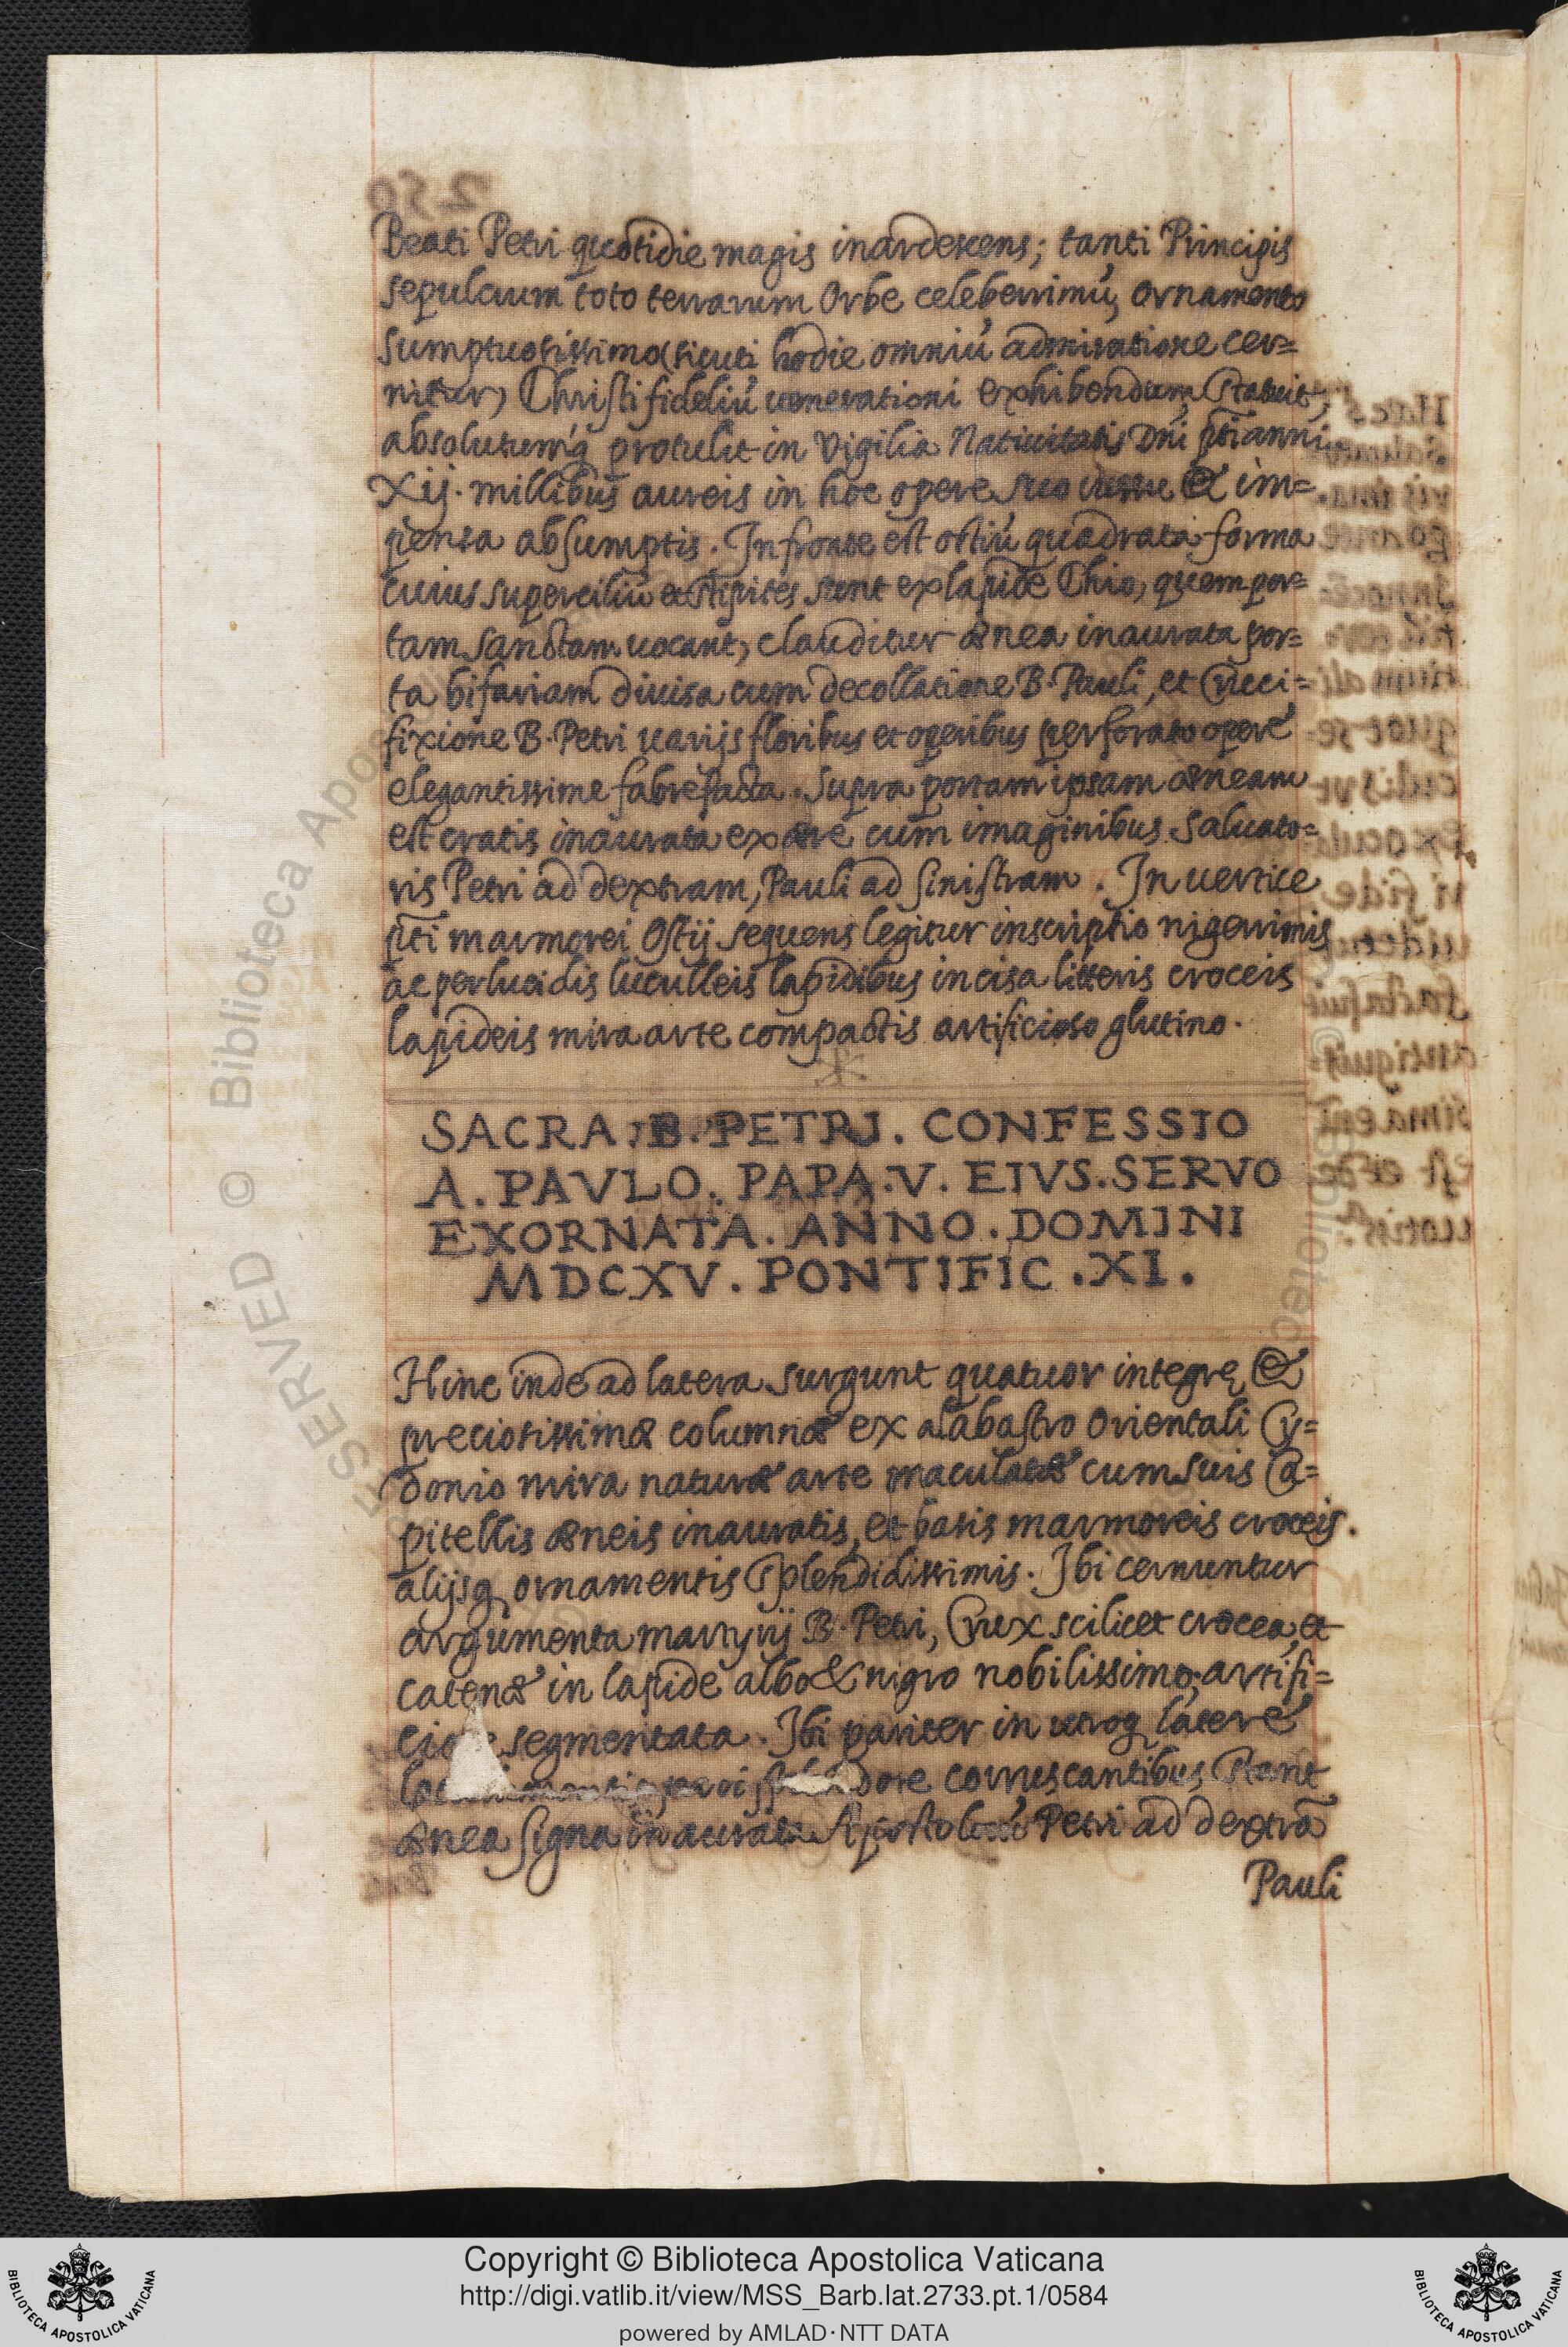 Beati Petri quotidie magis inardescens; tanti Principis
sepulcrum toto terrarum Orbe celeberrimū, ornamento
sumptuosissimo (sicuti hodie omniū admiratione cer=
nitur) Christifideliū venerationi exhibendum statuit,
absolutumq́ protulit in Vigilia Natiuitatis Dnī p̄ti anni
Xij. millibus aureis in hoc opere suo iussu & im=
pensa absumptis. In fronte est ostiū quadrata forma
cuius superciliū et stipites sunt ex lapide Chio, quem por=
tam sanctam uocant, clauditur ænea inaurata por=
ta bifariam diuisa cum decollatione B. Pauli, et Cruci=
fixione B. Petri uarijs floribus et operibus perforato opere
elegantissime fabrefacta. Supra portam ipsam æneam
est cratis inaurata ex ære cum imaginibus Saluato=
ris Petri ad dextram, Pauli ad sinistram. In uertice
p̄ti marmorei Ostij sequens legitur inscriptio nigerrimis
ac perlucidis luculleis lapidibus incisa litteris croceis
lapideis mira arte compactis artificioso glutino.
SACRA. B. PETRI. CONFESSIO
A. PAVLO. PAPA. V. EIVS. SERVO
EXORNATA. ANNO. DOMINI
MDCXV. PONTIFIC. XI.
Hinc inde ad latera surgunt quatuor integrę &
preciosissimæ columnæ ex alabastro Orientali Cy=
donio mira naturæ arte maculatæ cum suis Ca=
pitellis æneis inauratis, et basis marmoreis croceis.
alijsq ornamentis splendidissimis. Ibi cernuntur
argumenta martyrij B. Petri, Crux scilicet crocea, et
catenæ in lapide albo & nigro nobilissimo, artifi=
segmentata. Ibi pariter in utroq latere
coruscantibus stant
ænea signa inaurata Apostolorū Petri ad dextrā
Pauli
Copyright © Biblioteca Apostolica Vaticana
http://digi.vatlib.it/view/MSS_Barb.lat.2733.pt.1/0584
powered by AMLAD·NTT DATA
BIBLIOTECA APOSTOLICA VATICANA
BIBLIOTECA APOSTOLICA VATICANA